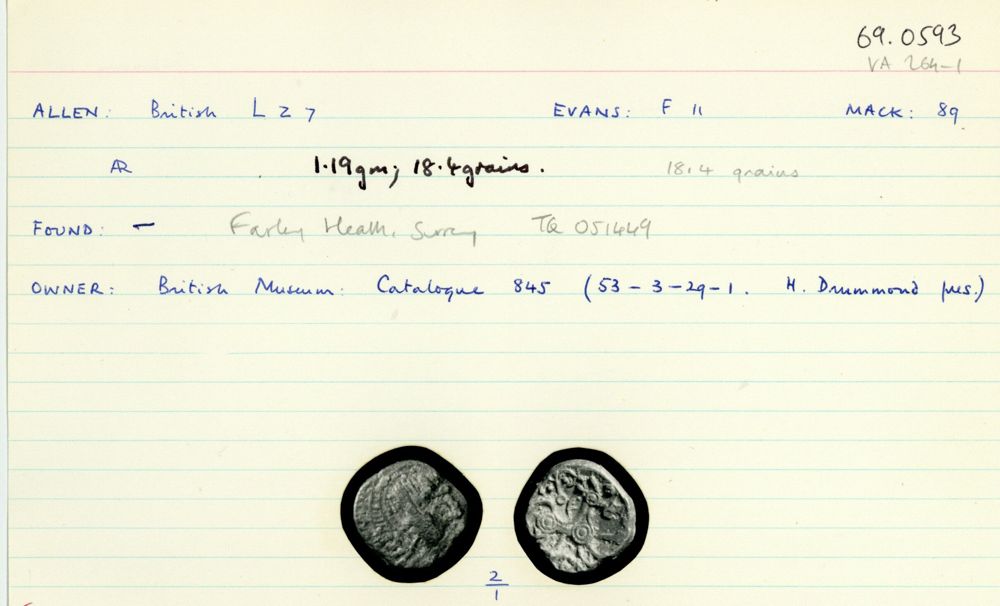 69.0593
VA 264-1
ALLEN: British L Z 7 EVANS: F 11 MACK: 89
AR 1.19gm; 18.4grains. 18.4 grains
FOUND: - Farley Heath, Surrey TQ 051449
OWNER: British Museum: Catalogue 845 (53-3-29-1. H. Drummond pres.)
2/1